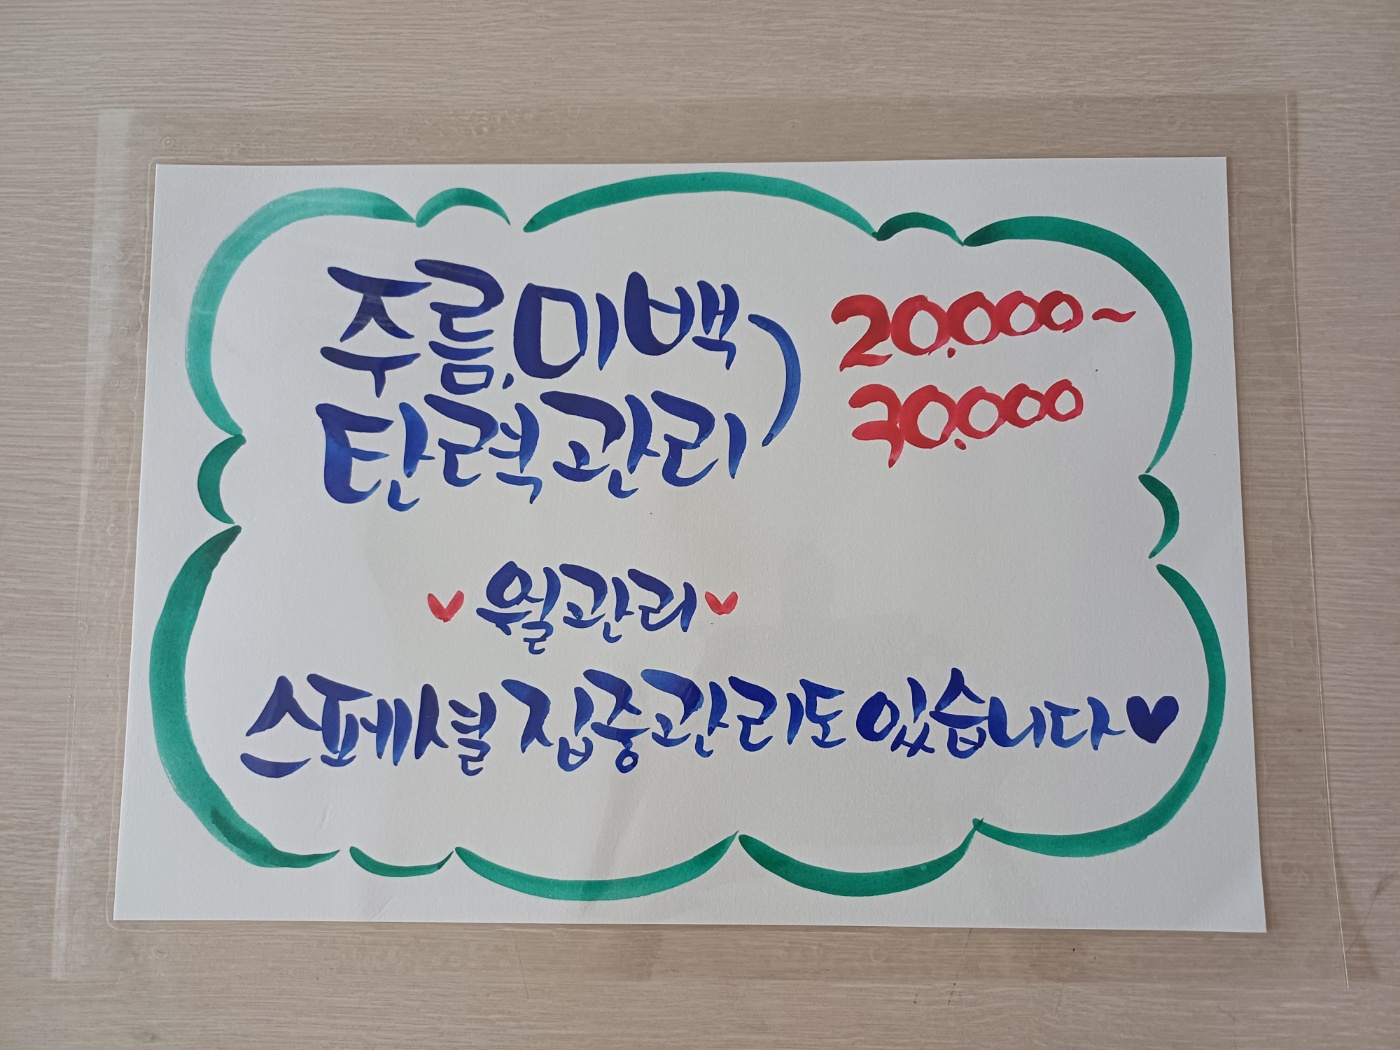 주름,미백 20,000~
탄력관리 30,000
월관리
스페셜 집중관리도 있습니다